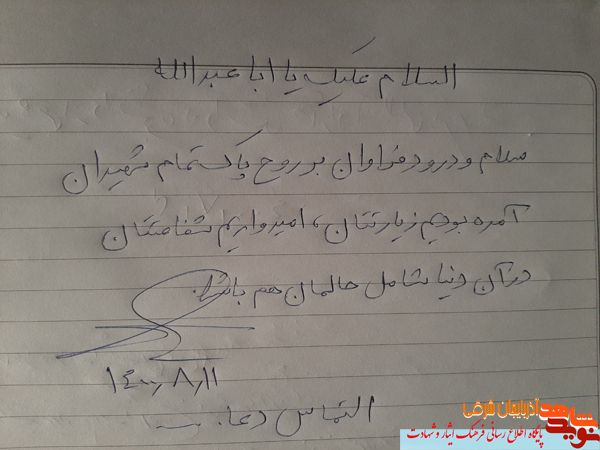 السلام علیک یا ابا عبدالله
سلام و درود فراوان بر روح پاک تمام شهیدان
آمده بودیم زیارتتان، امیدواریم شفاعتتان
در آن دنیا شامل حالمان هم باشد.
۱۴۰۰٫۸٫۱۱
التماس دعا.
آذربایجان شرقی
نوید شاهد
پایگاه اطلاع رسانی فرهنگ ایثار و شهادت